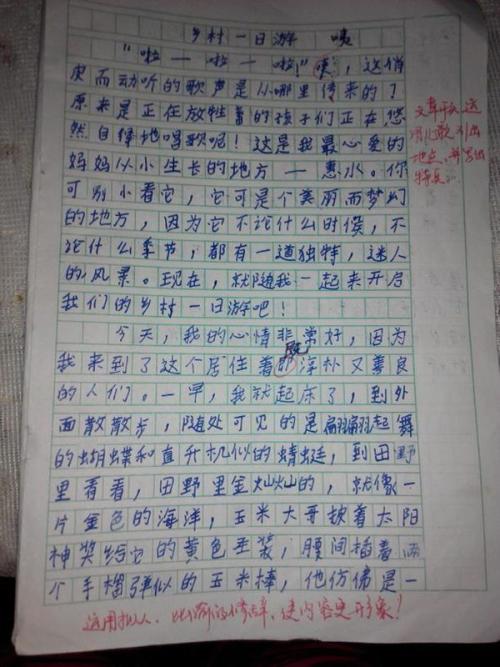 乡村一日游
“啦一啦一啦！”咦，这俏
皮而动听的歌声是从哪里传来的？
原来是正在放牲着的孩子们正在悠
然自得地唱歌呢！这是我最心爱的
妈妈从小生长的地方——惠水。你
可别小看它，它可是个美丽而梦幻
的地方，因为它不论什么时候，不
论什么季节，都有一道独特，迷人
的风景。现在，就随我一起来开启
我们的乡村一日游吧！
今天，我的心情非常好，因为
我来到了这个居住着既淳朴又善良
的人们。一早，我就起床了，到外
面散散步，随处可见的是翩翩起舞
的蝴蝶和直升机似的蜻蜓，到田野
里看看，田野里金灿灿的，就像一
片金色的海洋，玉米大哥披着太阳
神奖给它的黄色圣装，腰间插着两
个手榴弹似的玉米棒，他仿佛是一
文章开头
引出
地点，并写出
特点。
运用拟人、比喻的修辞，使内容更形象！